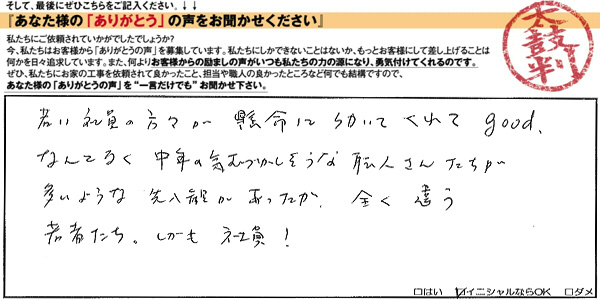 そして、最後にぜひこちらもご記入ください。↓↓↓
『あなた様の「ありがとう」の声をお聞かせください』
私たちにご依頼されていかがでしたでしょうか?
今、私たちはお客様から「ありがとうの声」を募集しています。私たちにしかできないことはないか、もっとお客様にして差し上げることは
何かを日々追求しています。また、何よりお客様からの励ましの声がいつも私たちの力の源になり、勇気付けてくれるのです。
ぜひ、私たちにお家の工事を依頼されて良かったこと、担当や職人の良かったところなど何でも結構ですので、
あなた様の「ありがとうの声」を“一言だけでも”お聞かせ下さい。
太鼓判
若い社員の方々が懸命に働いてくれてgood、
なんとなく中年の気むづかしそうな職人さんたちが
多いような先入観があったが、全く違う
若者たち。しかも社員!
□はい ☑イニシャルならOK □ダメ